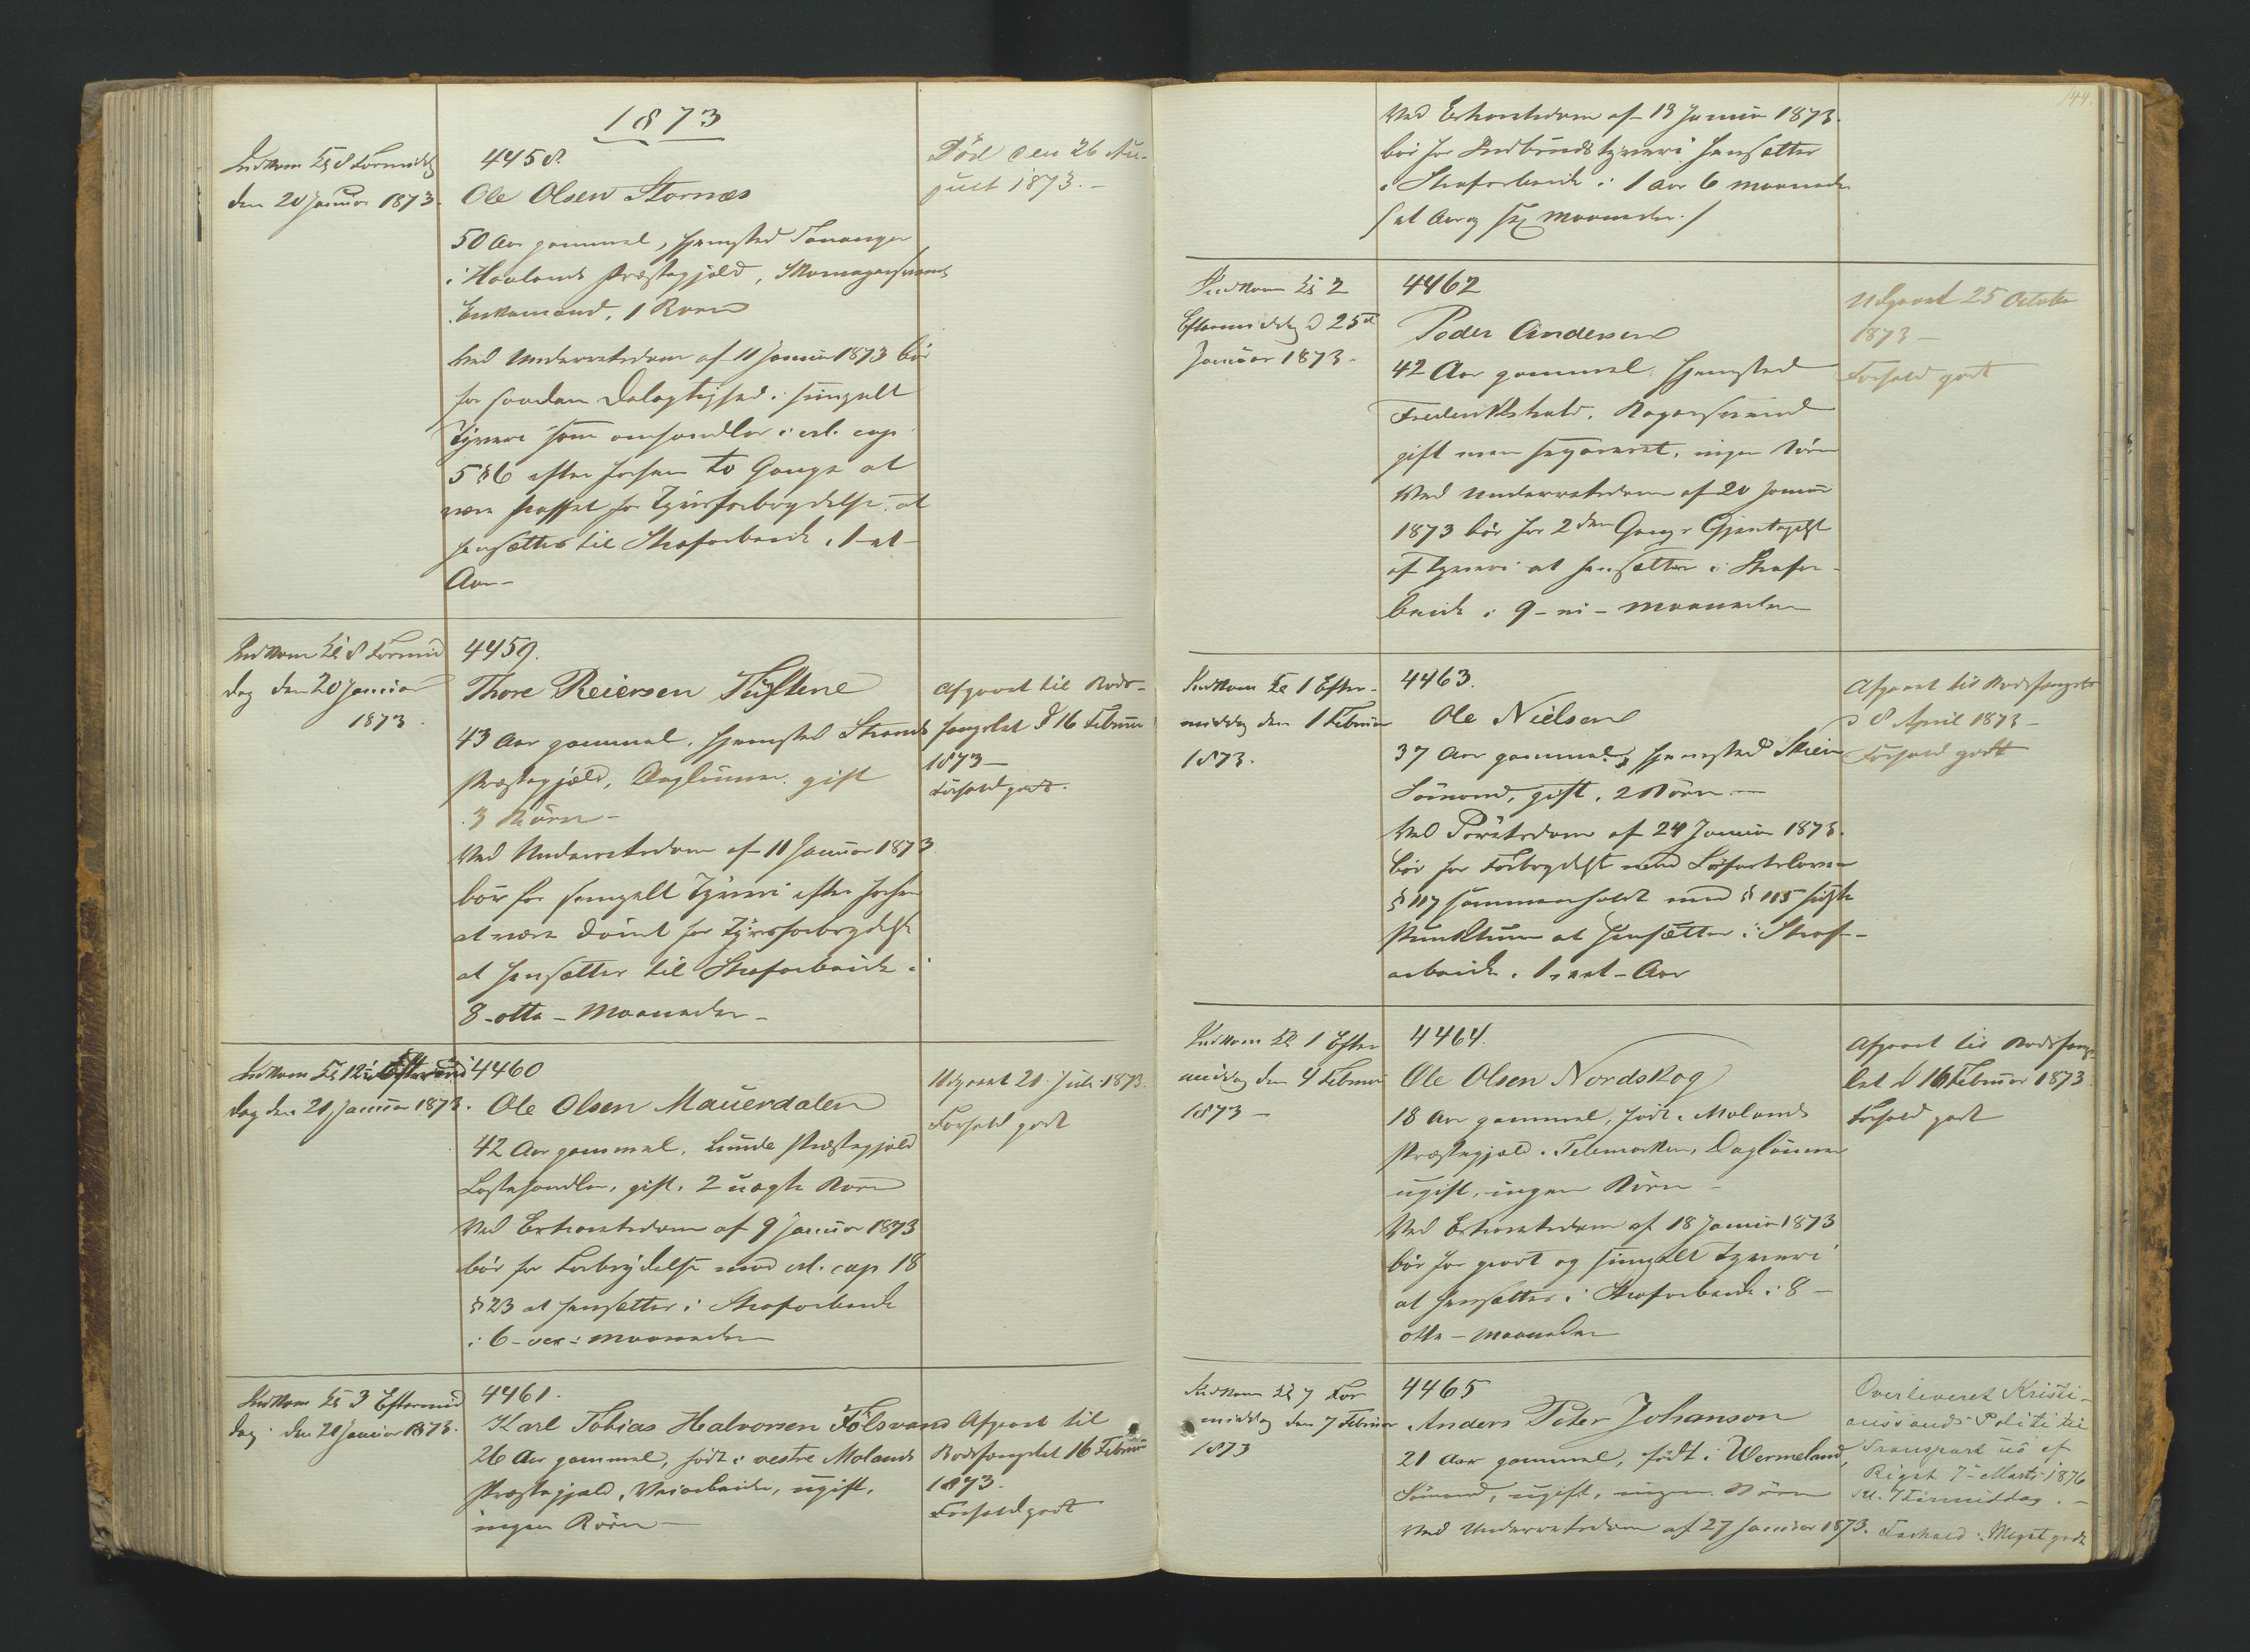 1873
Indkom Kl 8 Formidd
den 20 Januar 1873.
4458.
Ole Olsen Stornæs
50 Aar gammel, Hjemsted Tananger
i Haalands Præstegjæld, Skomagersvend
Enkemand, 1 Barn
Ved Underretsdom af 11 Januar 1873 bør
for saadan Delagtighed i simpelt
Tyveri som omhandler i crl. cap
5 § 6 efter forhen to Gange at
være straffet for Tyvsforbrydelse at
hensættes til Strafarbeide i 1 - et -
Aar -
Død den 26 Au-
gust 1873. -
Indkom Kl 8 Formid
dag den 20 Januar
1873.
4459.
Thore Reiersen Tuftene
43 Aar gammel, Hjemsted Strands
Præstegjæld, Daglønner, gift
3 Børn -
Ved Underretsdom af 11 Januar 1873
bør for simpelt Tyveri efter forhen
at være dømt for Tyvsforbrydelse
at hensættes til Strafarbeide i
8 - otte - Maaneder -
Afgaaet til Bods-
fængslet d 16 Februar
1873 -
Forhold godt.
Indkom Kl 12
dag den 21 Januar 1873.
4460
Ole Olsen Mauerdalen
42 Aar gammel, Lunde Præstegjæld
Løsehandler, gift, 2 uægte Børn
Ved Extraretsdom af 9 Januar 1873
bør for Forbrydelse mod crl. cap 18
§ 23 at hensættes i Strafarbeide
i 6 - sex - Maaneder
Udgaaet 21 Juli 1873.
Forhold godt
Indkom Kl 3 Eftermid
dag den 21 Januar 1873.
4461.
Karl Tobias Halvorsen Fölsvand
26 Aar gammel, født i vestre Molands
Præstegjæld, Veiarbeider, ugift,
ingen Børn -
Afgaaet til
Bodsfængslet 16 Februar
1873.
Forhold godt
144.
Ved Extraretsdom af 13 Januar 1873.
bør for Indbrudstyveri hensættes
i Strafarbeide i 1 Aar 6 Maaneder
/ et Aar og sex Maaneder. /
Indkom Kl 2
Eftermiddag d 25de
Januar 1873.
4462
Peder Andersen
42 Aar gammel, Hjemsted
Frederikshald, Bagersvend
gift men separeret, ingen Børn
Ved Underretsdom af 20 Januar
1873 bør for 2den Gang Gjentagelse
af Tyveri at hensættes i Strafar-
beide i 9 - ni - Maaneder
Udgaaet 25 October
1873 -
Forhold godt
Indkom Kl 1 Efter-
middag den 1 Februar
1873.
4463.
Ole Nielsen
37 Aar gammel, Hjemsted Skien
Sømand, gift, 2 Børn -
Ved Poretsdom af 24 Januar 1873.
bør for Forbrydelse mod Søfartsloven
§ 117 sammenholdt med § 115 sidste
Punktum at hensættes i Straf-
arbeide i 1 - et - Aar
Afgaaet til Bodsfængslet
d 8 April 1873 -
Forhold godt
Indkom Kl 1 Efter
middag den 4 Februar
1873 -
4464.
Ole Olsen Nordskog
18 Aar gammel, født i Molands
Præstegjæld i Telemarken, Daglønner
ugift, ingen Børn -
Ved Extraretsdom af 18 Januar 1873
bør for grovt og simpelt Tyveri
at hensættes i Strafarbeide i 8 -
otte - Maaneder
Afgaaet til Bodsfængs-
let d 16 Februar 1873.
Forhold godt
Indkom Kl 7 For
middag den 7 Februar
1873
4465
Anders Peter Johanson
21 Aar gammel, født i Wermeland,
Sømand, ugift, ingen Børn
Ved Underretsdom af 27 Januar 1873.
Overleveret Kristi-
anssands Politi til
Transport ud af
Riget 7de Marts 1876
Kl. 7 Formiddag. -
Forhold: Meget godt